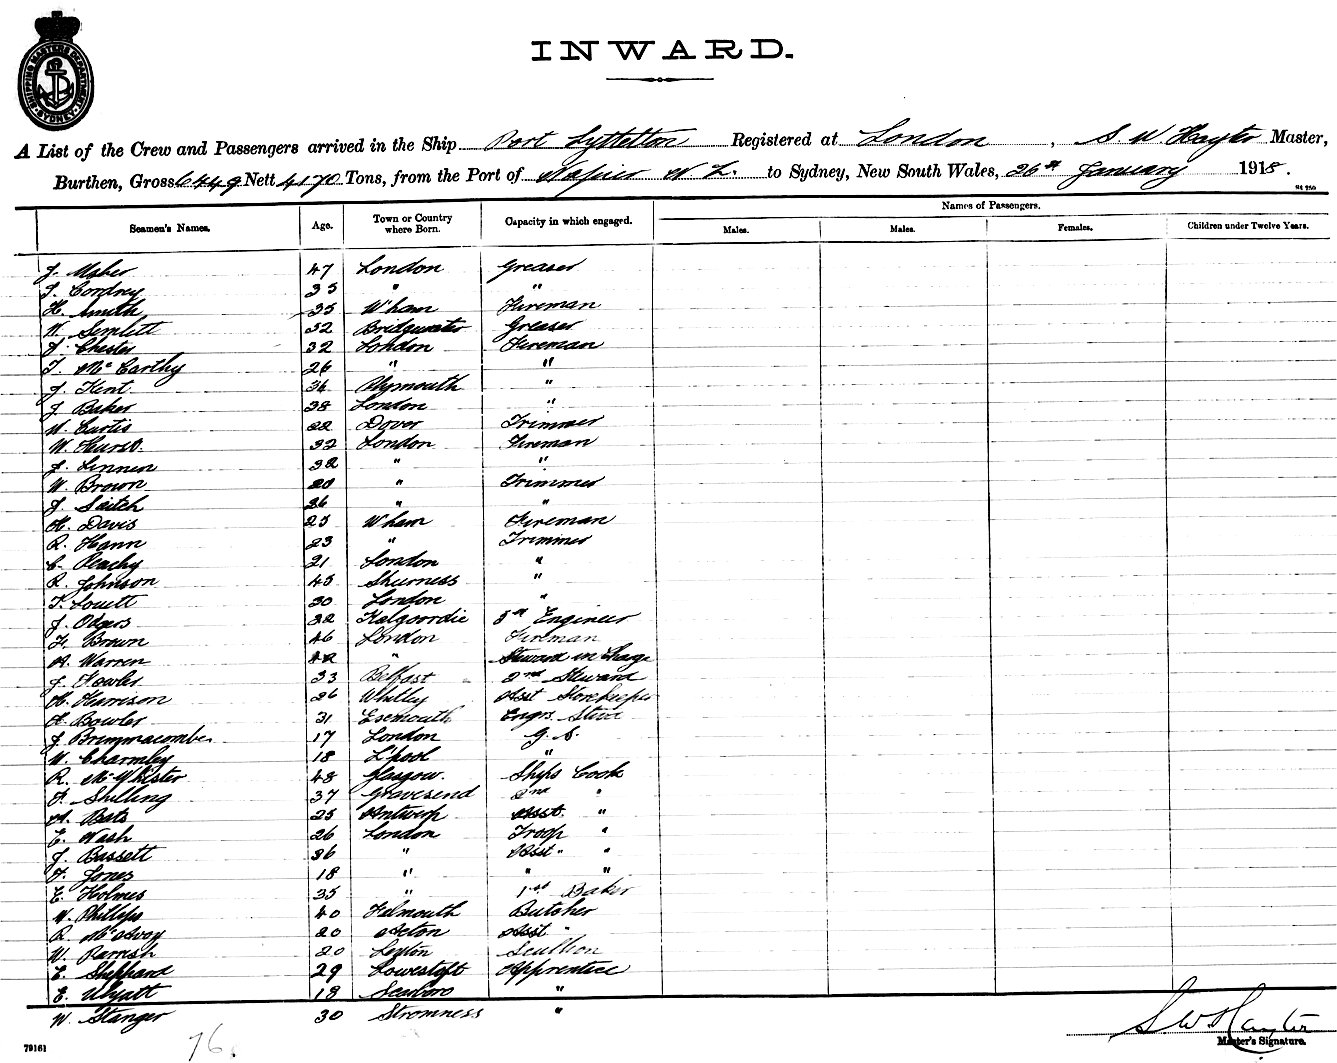 SHIPPING MASTERS DEPARTMENT SYDNEY
INWARD.
A List of the Crew and Passengers arrived in the Ship Port Lyttelton Registered at London, S. W. Hayter Master,
Burthen, Gross 6449 Nett 4170 Tons, from the Port of Napier N Z. to Sydney, New South Wales, 26th January 1918.
Names of Passengers.
Seamen's Names. Age. Town or Country where Born. Capacity in which engaged. Males. Males. Females. Children under Twelve Years.
J. Maher 47 London Greaser
J. Cordrey 35 " "
H. Smith 35 W'ham Fireman
W. 52 Bridgwater Greaser
Chester 32 London Fireman
T. McCarthy 26 " "
J. Kent. 34 Plymouth "
J. Baker 38 London "
W. Curtis 22 Dover Trimmer
W. Hurst. 32 London Fireman
J. Linnen 32 " "
W. Brown 20 " Trimmer
J. Saitch 26 " "
H. Davis 25 W'ham Fireman
R. Hann 23 " Trimmer
C. Peachy 21 London "
R. Johnson 45 Sheerness "
T. Lovett 30 London "
J. Odgers 22 Kalgoordie 5th Engineer
Fr. Brown 46 London Fireman
A. Warren 42 " Steward in Charge
J. Fowler 33 Belfast 2nd Steward
H. Harrison 26 Whitley Asst Storekeeper
A. Bowler 31 Exmouth Engrs Stew
J. Brimmacombe 17 London G. S.
W. Charmley 18 L'pool "
R. McWhister 48 Glasgow. Ships Cook
F. Shilling 37 Gravesend 2nd "
A. Bats 25 Antwerp Asst. "
E. Wash 26 London Troop "
J. Bassett 36 " Asst " "
F. Jones 18 " " "
E. Holmes 35 " 1st Baker
W. Phillips 40 Falmouth Butcher
R. McAvoy 20 Acton Asst "
W. Parrish 20 Leyton Scullion
E. Sheppard 29 Lowestoft Apprentice
E. Wyatt 18 Scarboro "
W. Stanger 30 Stromness "
S W. Hayter
Master's Signature.
79161
76.